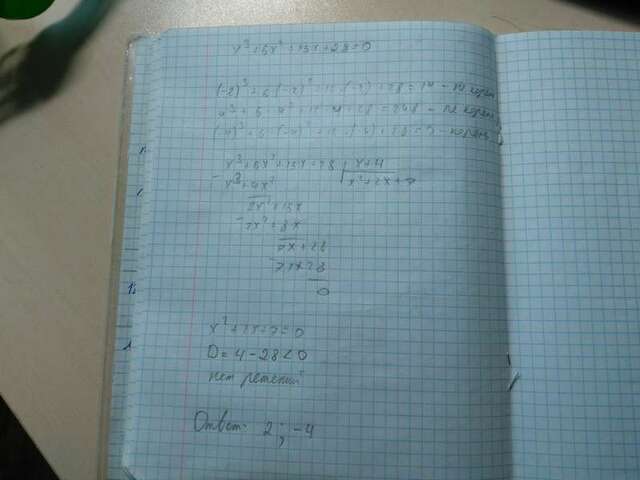 x³+6x²+15x+28=0
(-2)³+6·(-2)²+15·(-2)+28=14 - не корень
4³+6·4²+15·4+28=248 - не корень
(-4)³+6·(-4)²+15·(-4)+28=0 - корень
x³+6x²+15x+28 | x+4
- x³+4x² x²+2x+7
2x²+15x
- 2x²+8x
7x+28
- 7x+28
0
x²+2x+7=0
D=4-28<0
нет решений
Ответ: 2; -4